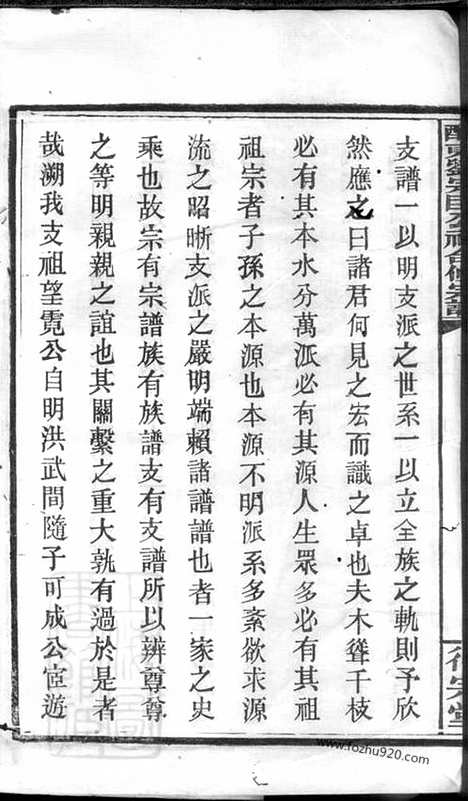 支譜一以明支派之世系一以立全族之軌則予欣
然應之曰諸君何見之宏而識之卓也夫木聳千枝
必有其本水分萬派必有其源人生眾多必有其祖
祖宗者子孫之本源也本源不明派系多紊欲求源
流之昭晰支派之嚴明端賴諸譜譜也者一家之史
乘也故宗有宗譜族有族譜支有支譜所以辨尊尊
之等明親親之誼也其關繫之重大孰有過於是者
哉溯我支祖望霓公自明洪武間隨子可成公宦遊
www.fozhu920.com